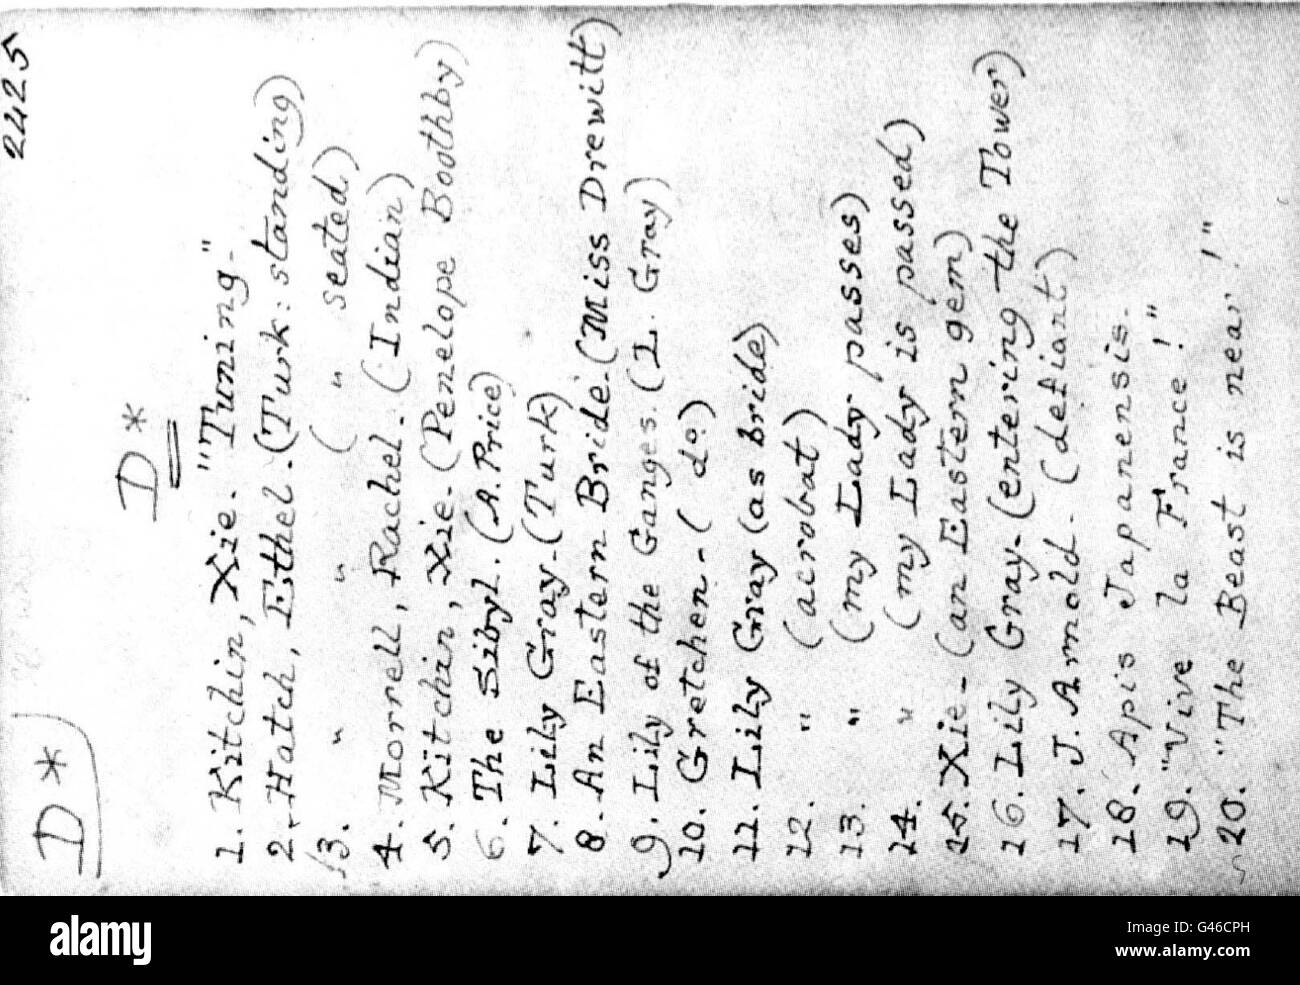 2425
D*
D*
1. Kitchin, Xie. "Tuning."
2. Hatch, Ethel. (Turk: standing)
3. " " ( " seated)
4. Morrell, Rachel. (Indian)
5. Kitchin, Xie. (Penelope Boothby)
6. The Sibyl. (A. Price)
7. Lily Gray. (Turk)
8. An Eastern Bride. (Miss Drewitt)
9. Lily of the Ganges. (L. Gray)
10. Gretchen. ( do.)
11. Lily Gray (as bride)
12. " (acrobat)
13. " (my Lady passes)
14. " (my Lady is passed)
15. Xie. (an Eastern gem)
16. Lily Gray. (entering the Tower)
17. J. Arnold. (defiant)
18. Apis Japanensis.
19. "Vive la France!"
20. "The Beast is near!"
alamy
Image ID: G46CPH
www.alamy.com